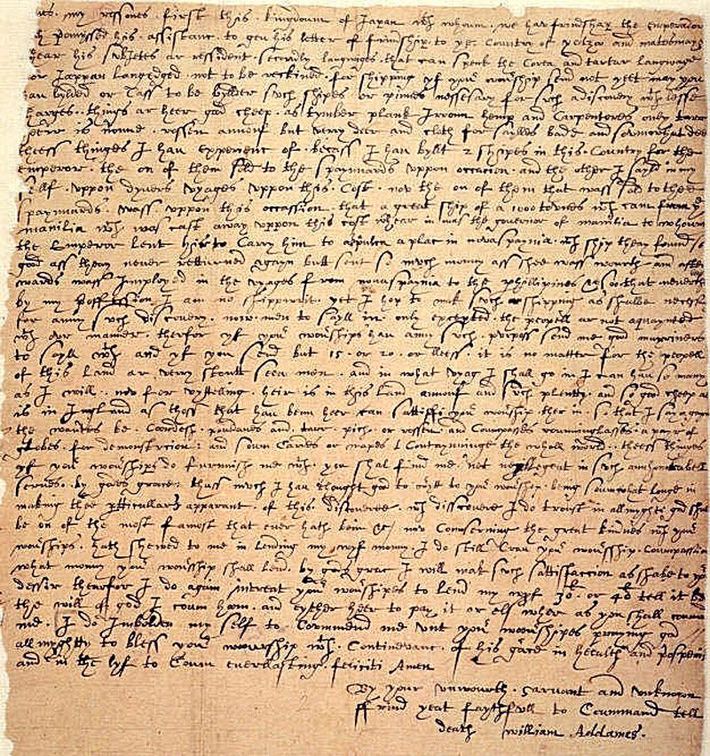 my ressones first this kingdoum of Japan wth whoum we hav frindshax the emperador
his assistance to geu his letter of frindship to ye Country of yolzo and matesmay
hear his subjetes ar ressident secondly langwiges that can speek the Corea and tartar langwage
or Jappan langedged not to be reckined for shipping yf your wourship send not yett may you
hav bylded or to be bylded such shipes or pinces nessesary for such a discovery wth lesse
charges things ar heer good cheep as tymber plank Irroun hemp and Carpentores only tarre
heer is none rossen annouf but very deer and cloth for saylles bade and somwhat deer
thess thinges I hav experienc of becass I hav byllt 2 shipes in this Country for the
emperor the on of them sold to the spaynnards uppon occacion and the other I sayld in my
self uppon dyvers vyages uppon this Cost now the on of them that wass sold to thee
spaynards wass uppon this occassion that a great ship of a 1000 tovnes wch cam from ye
manilia wch was cast away uppon this cost whear in was the governor of manilia to whoum
the Emperor lent his to Carry him to akpulca a plac in novaspaynia wch ship they found so
good ass them never retturned agayn but sent so much money ass shee wass wourth and after
wards wass Imployed in the vyages from novaspaynia to the phillipines so that neverth
by my proffession I am no shippwrit yet I hop to mak such shipping as shalbe necess
for anny such discovery now men to sayll wth only excepted the peopell ar not aquaynted
wth our maner therfor yf your wourships hav anny such purpas send me good marriners
to sayll wth and yf you send but 15 or 20 or lesse it is no matter for the peopell
of this land ar very stoutt seea men and in what vyag I shall go in I can hav so many
as I will now for vyttelling heir is in this land annouf and such plenty and so good cheep
as is in Ingland as those that hav beenn heer can sattisfi your wourship ther in so that I say agayn
the wantes be Coordesh pouldaves and tarr pich or rossen and Compasses rounninglasses a payr of
globes for demonstration and soum Cardes or mapes Contayninge the wholl world thees thinges
yf your wourships do furrnish me wth you shal find me not neglegent in such an honorabell
servies by godes grace thuss much I hav thought good to wryt to your wourship being soumwhat longe in
making thee pticullars apparant of this discoverie wch discoverie I do troust in allmighti god shall
be on of the most famost that ever hath bein &c now Conserninge the great kindnes wch your
wourships hath shewed to me in lending my wyf mony I do still Crau your wourship Compassion
what mony your wourship shall lend by gods grac I will mak such sattisfaccion as shalbe to your
dessir therfor I do again intreat your wourships to lend my wyf 30 or 40 tell it be
the will of god I coum ham and eyther heer to pay it or els wher as you shall comand
me I do Inbolden my self to Commend me unt your wourshipes praying god
allmightty to bless your wourship wth Continevanc of his grace in heallth and prosperiti
and in the lyf to Coum everlasting feliciti Amen
By your unwourth sarvant and unknown
frind yeat faythfull to Coummand tell
death William Addames